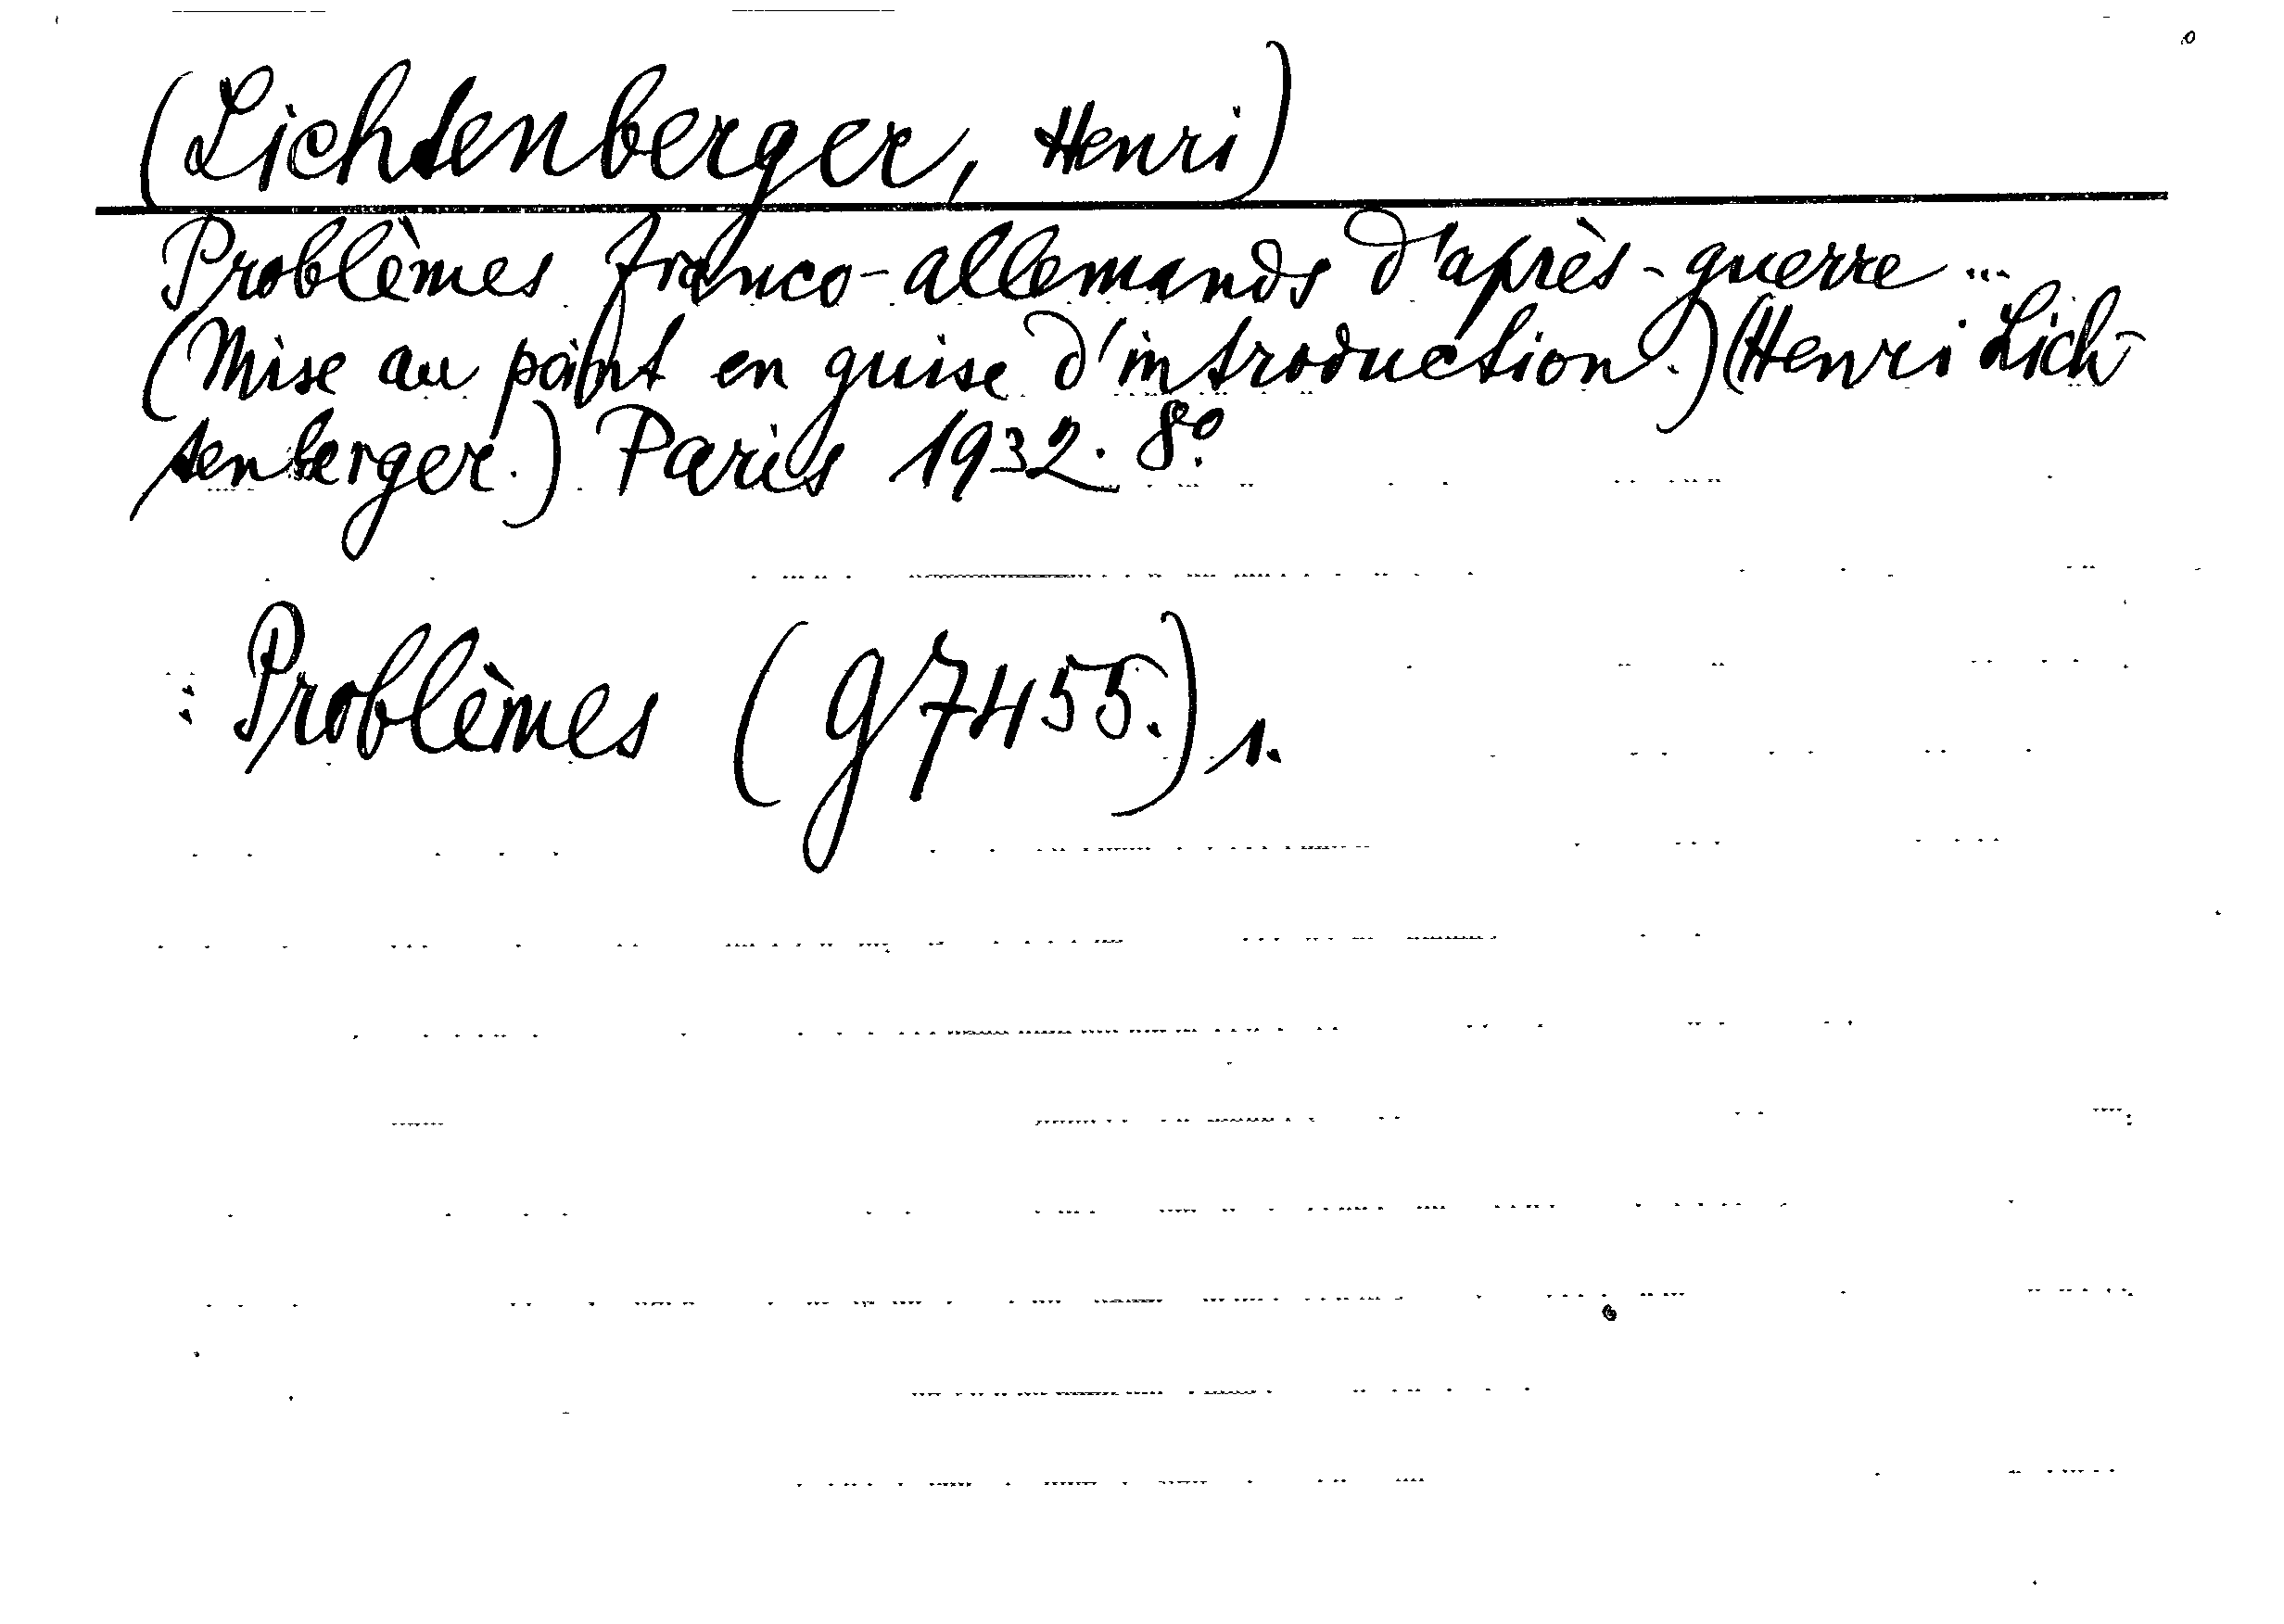 (Lichtenberger, Henri)
Problèmes franco-allemands d'après-guerre...
(Mise au point en guise d'introduction.) (Henri Lich-
tenberger.) Paris 1932. 8°.
: Problèmes (g7455.) 1.